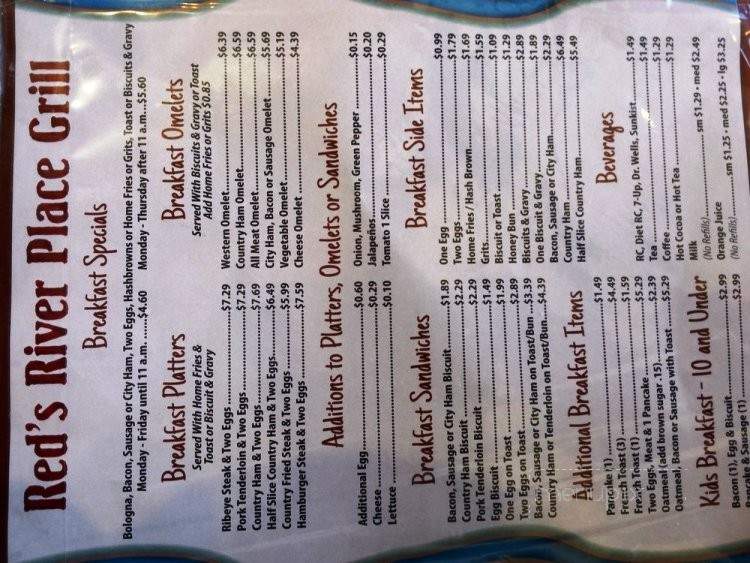 Red's River Place Grill
Breakfast Specials
Bologna, Bacon, Sausage or City Ham, Two Eggs, Hashbrowns or Home Fries or Grits, Toast or Biscuits & Gravy
Monday - Friday until 11 a.m. ...$4.60 Monday - Thursday after 11 a.m. ..$5.60
Breakfast Platters
Served With Home Fries &
Toast or Biscuit & Gravy
Ribeye Steak & Two Eggs $7.29
Pork Tenderloin & Two Eggs $7.29
Country Ham & Two Eggs $7.69
Half Slice Country Ham & Two Eggs $6.49
Country Fried Steak & Two Eggs $5.99
Hamburger Steak & Two Eggs $7.59
Breakfast Omelets
Served With Biscuits & Gravy or Toast
Add Home Fries or Grits $0.85
Western Omelet $6.39
Country Ham Omelet $6.59
All Meat Omelet $6.59
City Ham, Bacon or Sausage Omelet $5.69
Vegetable Omelet $5.19
Cheese Omelet $4.39
Additions to Platters, Omelets or Sandwiches
Additional Egg $0.60
Cheese $0.29
Lettuce $0.10
Onion, Mushroom, Green Pepper $0.15
Jalapeños $0.20
Tomato 1 Slice $0.29
Breakfast Sandwiches
Bacon, Sausage or City Ham Biscuit $1.89
Country Ham Biscuit $2.29
Pork Tenderloin Biscuit $2.29
Egg Biscuit $1.49
One Egg on Toast $1.99
Two Eggs on Toast $2.89
Bacon, Sausage or City Ham on Toast/Bun $3.39
Country Ham or Tenderloin on Toast/Bun $4.39
Breakfast Side Items
One Egg $0.99
Two Eggs $1.79
Home Fries / Hash Brown $1.69
Grits $1.59
Biscuit or Toast $1.09
Honey Bun $1.29
Biscuits & Gravy $2.89
One Biscuit & Gravy $1.89
Bacon, Sausage or City Ham $2.29
Country Ham $6.49
Half Slice Country Ham $5.49
Additional Breakfast Items
Pancake (1) $1.49
French Toast (3) $4.49
French Toast (1) $1.59
Two Eggs, Meat & 1 Pancake $5.29
Oatmeal (add brown sugar .15) $2.39
Oatmeal, Bacon or Sausage with Toast $5.29
Beverages
RC, Diet RC, 7-Up, Dr. Wells, Sunkist $1.49
Tea $1.49
Coffee $1.29
Hot Cocoa or Hot Tea $1.29
Milk sm $1.29 • med $2.49
(No Refills)
Orange Juice sm $1.25 • med $2.25 • lg $3.25
(No Refills)
Kids Breakfast - 10 and Under
Bacon (1), Egg & Biscuit $2.99
Pancake & Sausage (1) $2.99